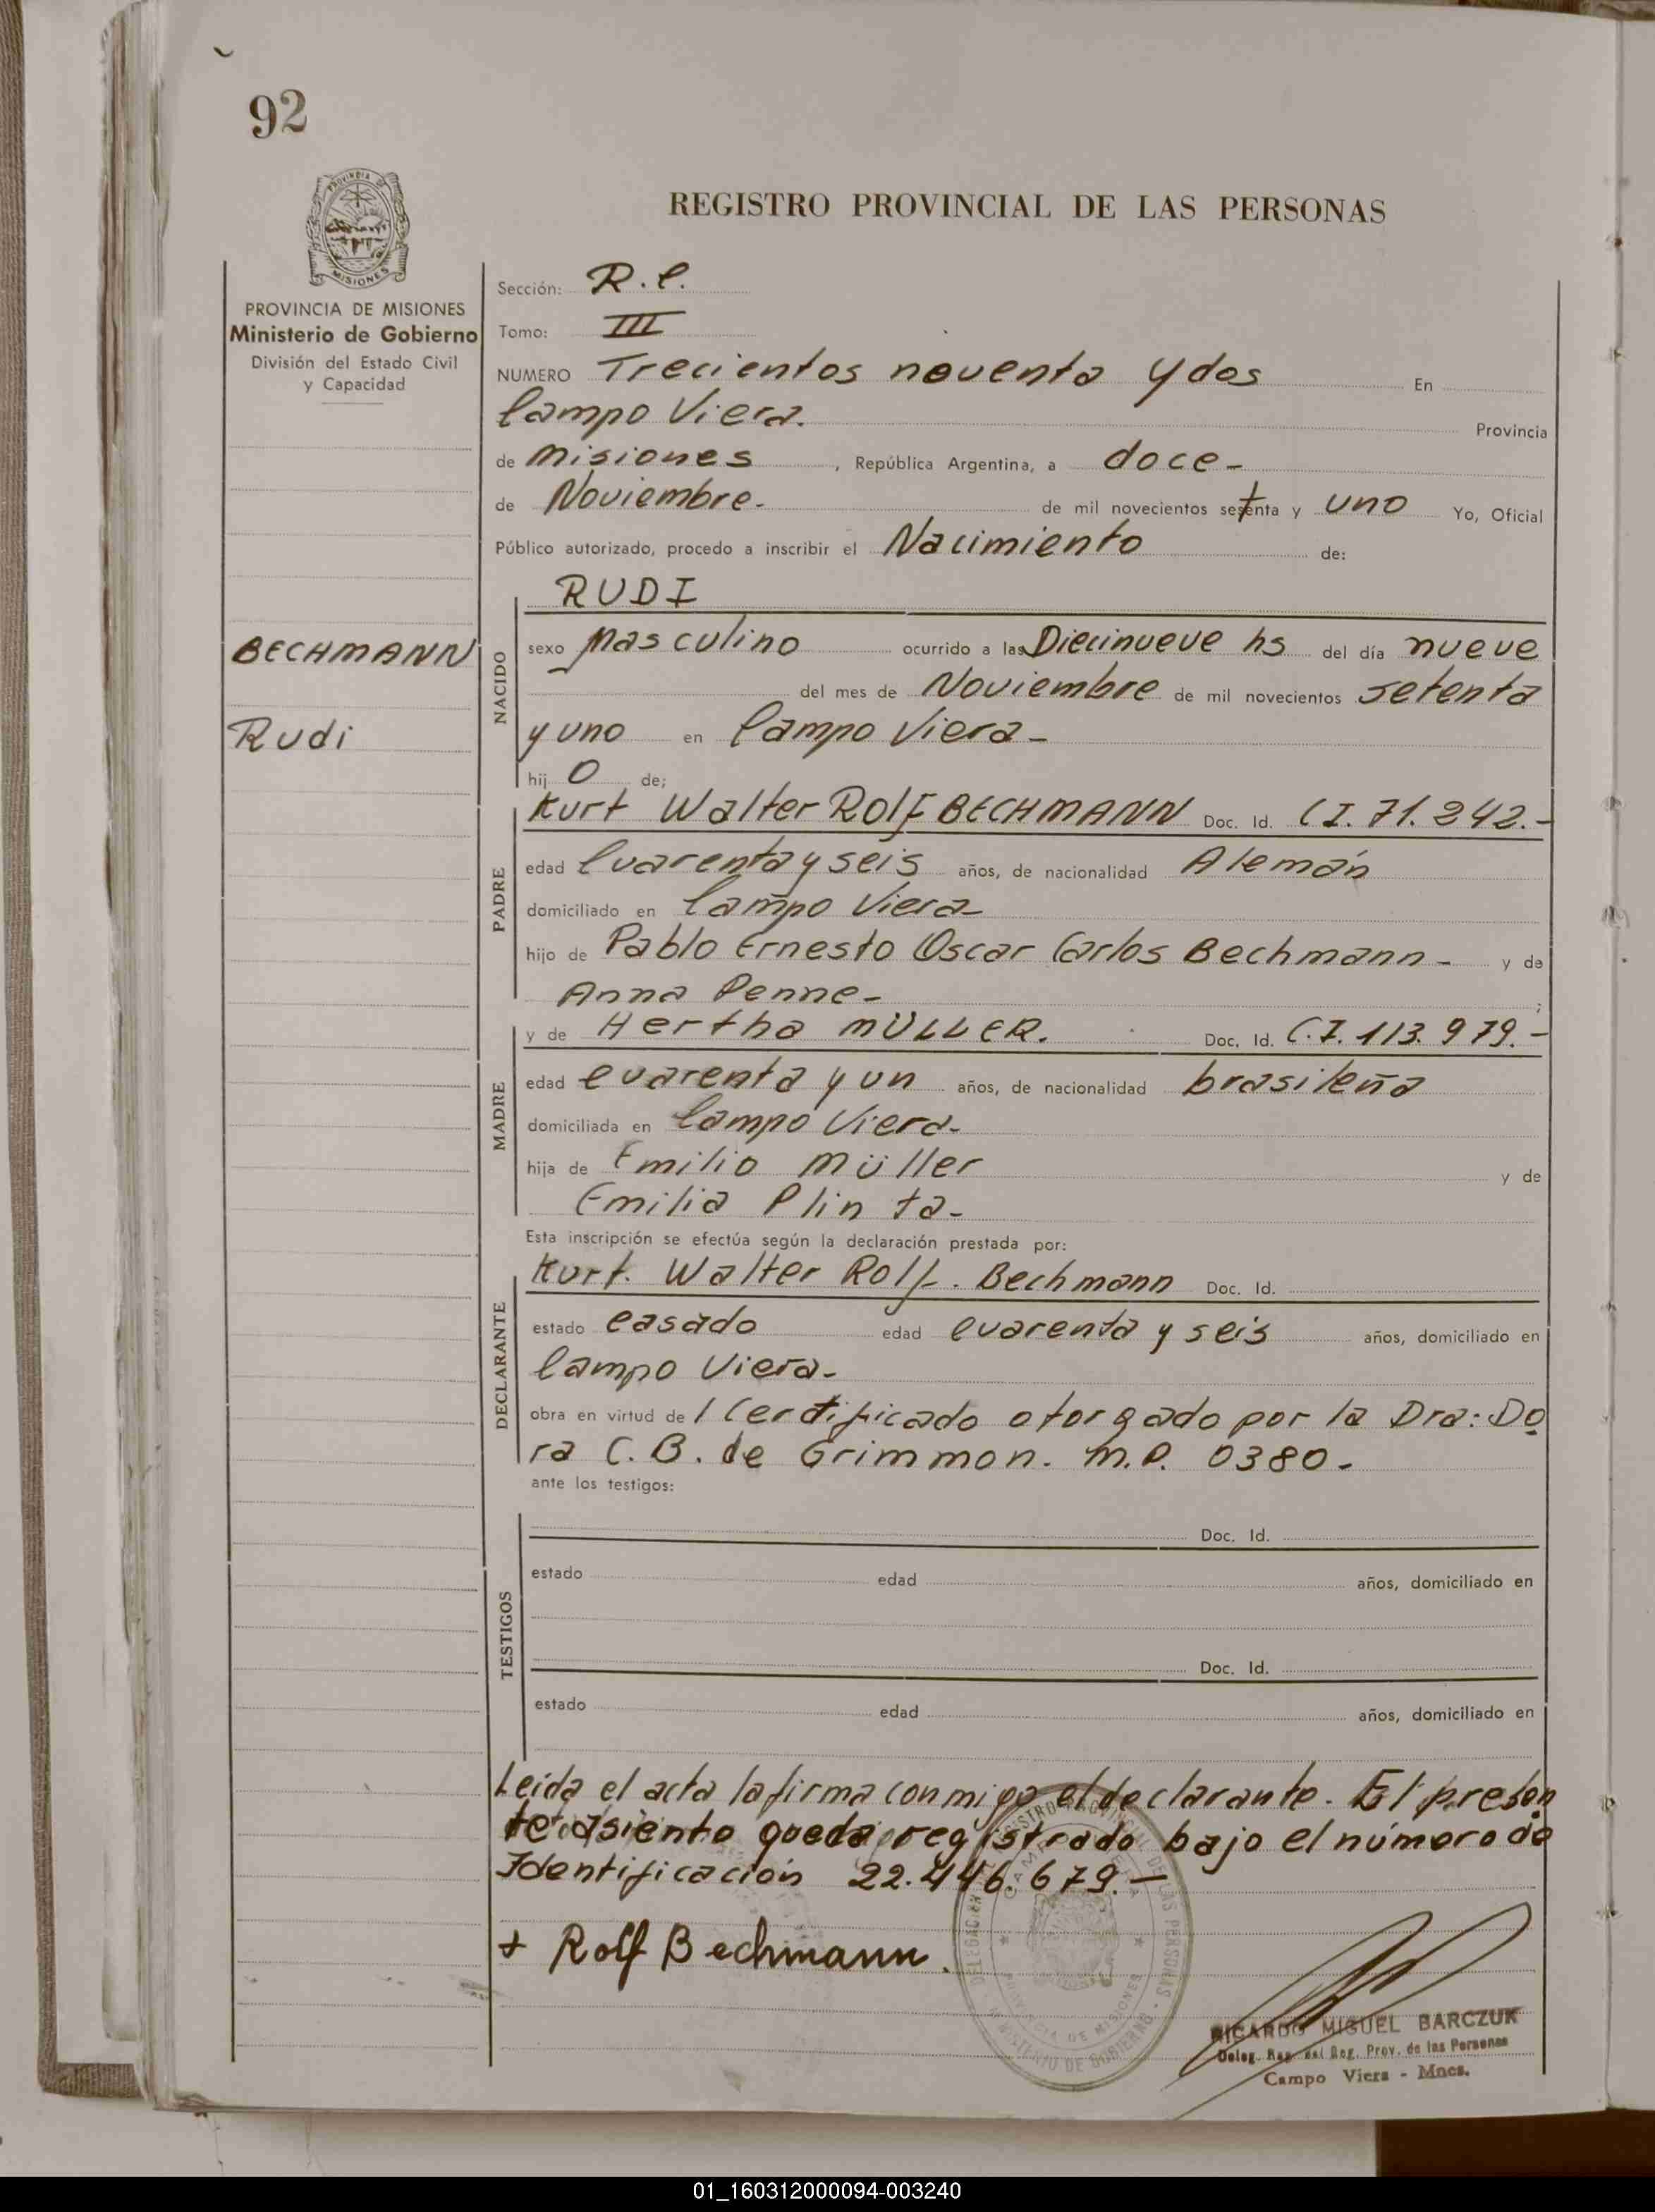 92
PROVINCIA DE
MISIONES
PROVINCIA DE MISIONES
Ministerio de Gobierno
División del Estado Civil
y Capacidad
BECHMANN
Rudi
REGISTRO PROVINCIAL DE LAS PERSONAS
Sección: R.C.
Tomo: III
NUMERO Trecientos noventa y dos En
Campo Viera. Provincia
de Misiones, República Argentina, a doce -
de Noviembre. de mil novecientos setenta y uno Yo, Oficial
Público autorizado, procedo a inscribir el Nacimiento de:
NACIDO
RUDI
sexo Masculino ocurrido a las Diecinueve hs del día nueve
del mes de Noviembre de mil novecientos setenta
y uno en Campo Viera -
hijo de;
PADRE
Kurt Walter Rolf BECHMANN Doc. Id. C I. 71. 242.-
edad Cuarenta y seis años, de nacionalidad Alemán
domiciliado en Campo Viera -
hijo de Pablo Ernesto Oscar Carlos Bechmann - y de
Anna Penne - ;
MADRE
y de Hertha MÜLLER. Doc. Id. C.I. 113. 979.-
edad cuarenta y un años, de nacionalidad brasileña
domiciliada en Campo Viera -
hija de Emilio Müller y de
Emilia Plin ta -
Esta inscripción se efectúa según la declaración prestada por:
DECLARANTE
Kurt. Walter Rolf. Bechmann Doc. Id.
estado casado edad cuarenta y seis años, domiciliado en
Campo Viera -
obra en virtud de 1 Certificado otorgado por la Dra: Do
ra C. B. de Grimmon. M.P. 0380 -
ante los testigos:
TESTIGOS
Doc. Id.
estado edad años, domiciliado en
Doc. Id.
estado edad años, domiciliado en
Leída el acta la firma conmigo el declarante. El presen
te asiento queda registrado bajo el número de
Identificación 22.446.679.-
+ Rolf Bechmann.
DE LAS PERSONAS
PROVINCIA DE MISIONES
MINISTERIO DE GOBIERNO
RICARDO MIGUEL BARCZUK
Deleg. Reg. del Reg. Prov. de las Personas
Campo Viera - Mnes.
01_160312000094-003240